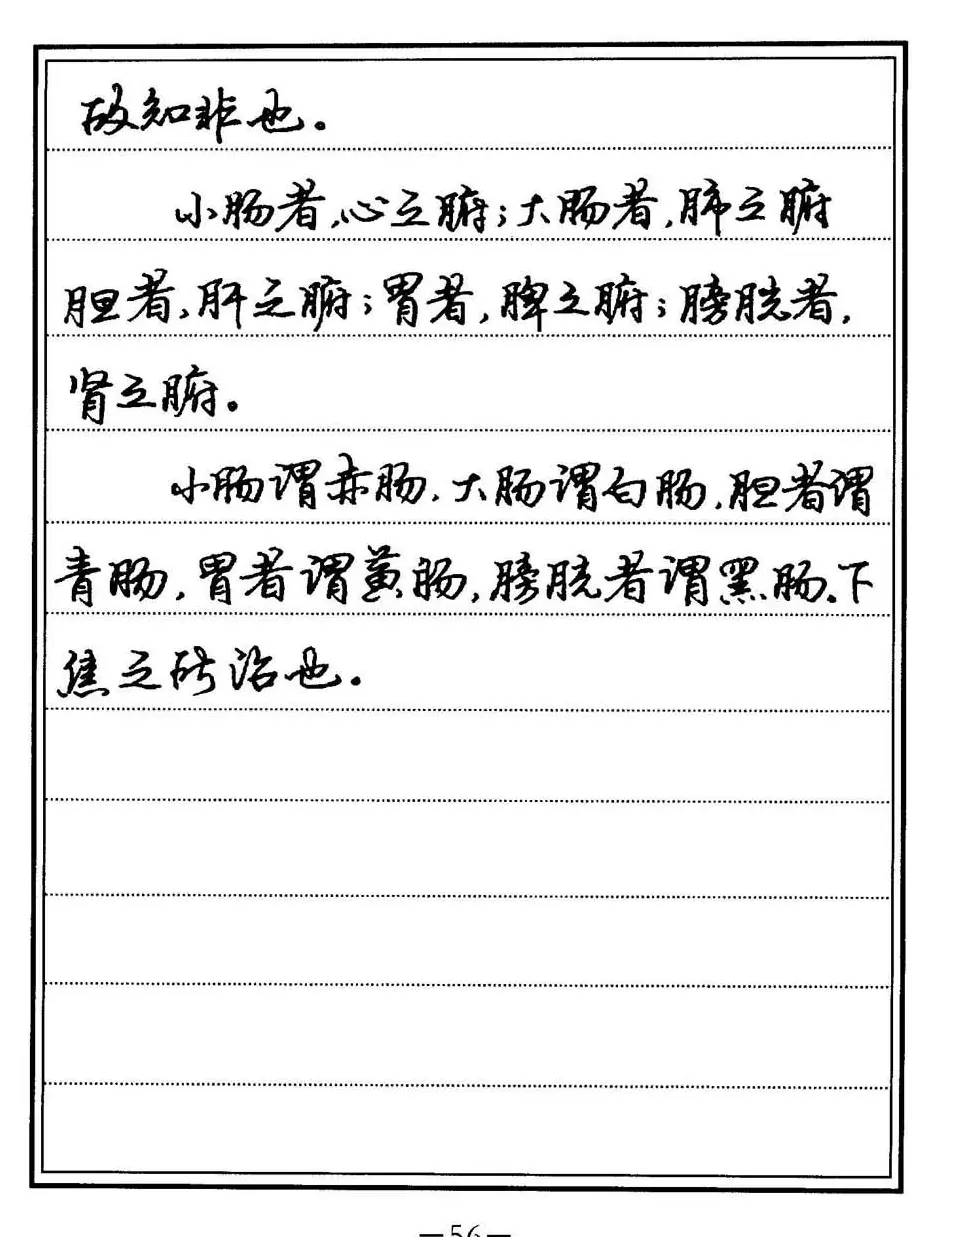 故知非也。
小肠者,心之腑;大肠者,肺之腑
胆者,肝之腑;胃者,脾之腑;膀胱者,
肾之腑。
小肠谓赤肠,大肠谓白肠,胆者谓
青肠,胃者谓黄肠,膀胱者谓黑肠.下
焦之所治也.
—56—